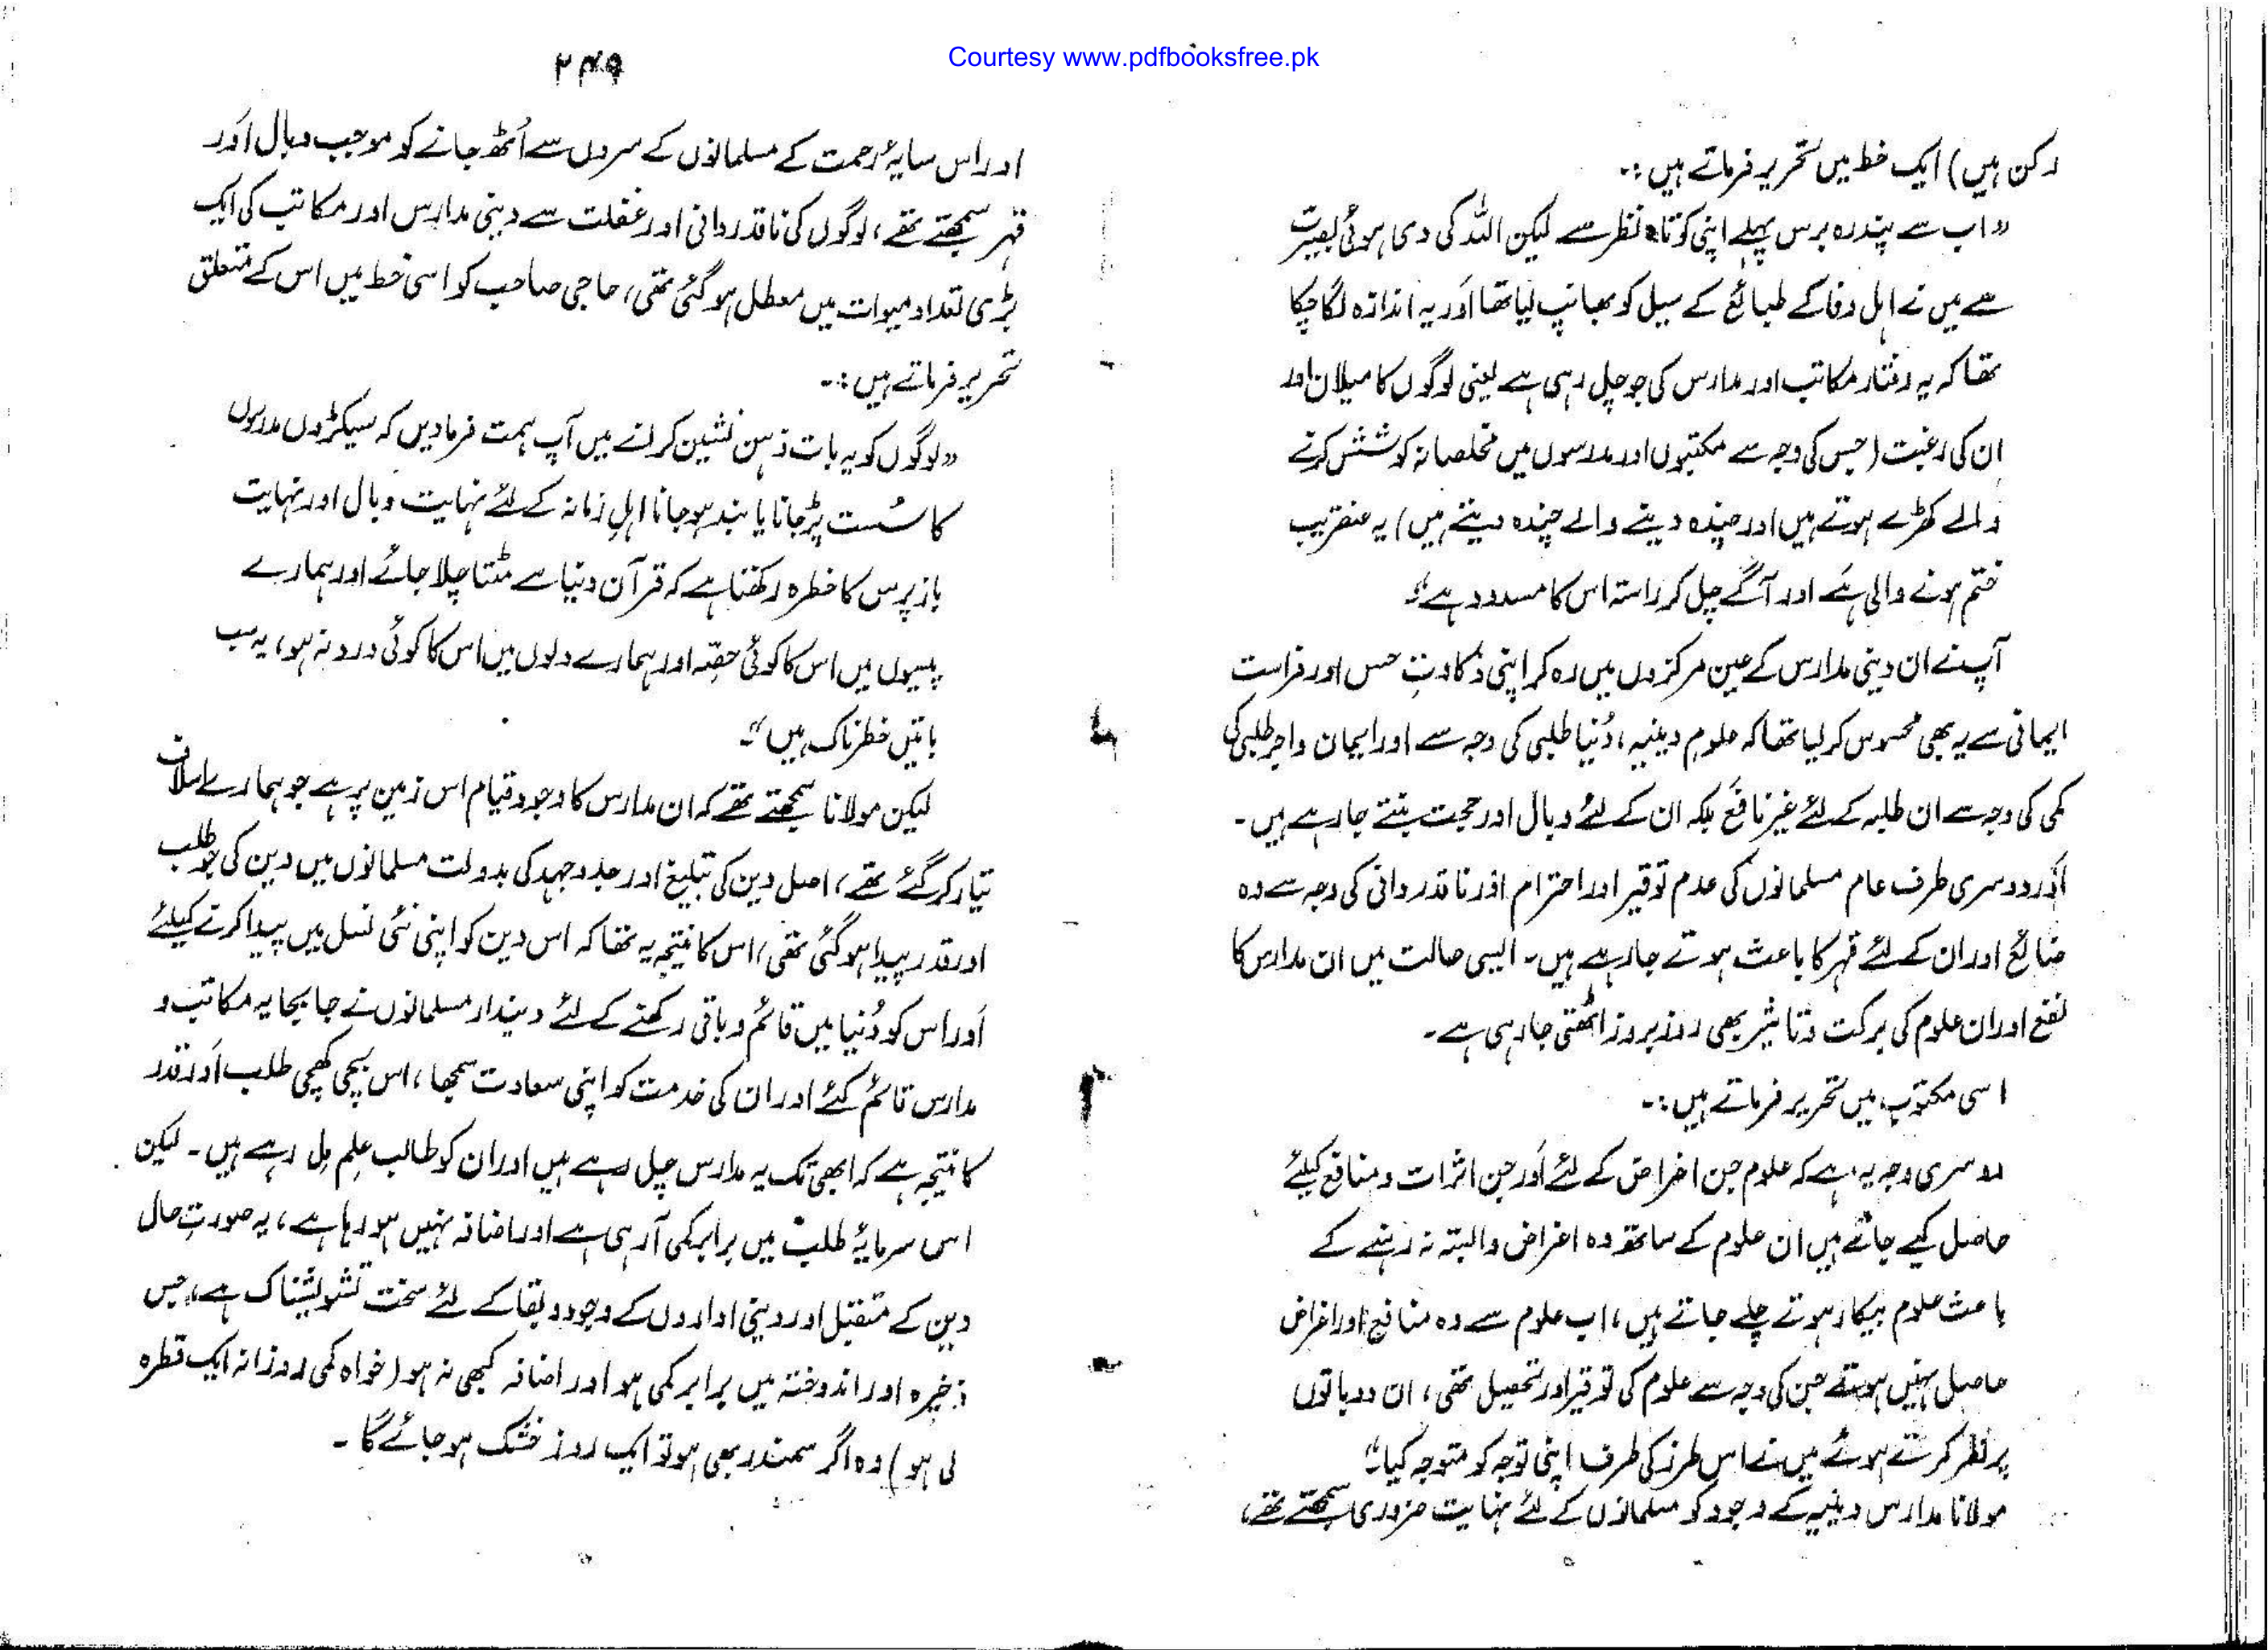 Courtesy www.pdfbooksfree.pk
رکن ہیں) ایک خط میں تحریر فرماتے ہیں :۔
"اب سے پندرہ برس پہلے اپنی کوتاہ نظر سے لیکن اللہ کی دی ہوئی بصیرت
سے میں نے اہل وفا کے طبائع کے سیل کو بھانپ لیا تھا اور یہ اندازہ لگا چکا
تھا کہ یہ رفتار مکاتب اور مدارس کی جو چل رہی ہے یعنی لوگوں کا میلان اور
ان کی رغبت (جس کی وجہ سے مکتبوں اور مدرسوں میں مخلصانہ کوشش کرنے
والے کھڑے ہوتے ہیں اور چندہ دینے والے چندہ دیتے ہیں) یہ عنقریب
ختم ہونے والی ہے اور آگے چل کر راستہ اس کا مسدود ہے"
آپ نے ان دینی مدارس کے عین مرکزوں میں رہ کر اپنی ذکاوتِ حس اور فراست
ایمانی سے یہ بھی محسوس کر لیا تھا کہ علوم دینیہ، دُنیا طلبی کی وجہ سے اور ایمان و اجر طلبی کی
کمی کی وجہ سے ان طلبہ کے لئے غیر نافع بلکہ ان کے لئے وبال اور حجت بنتے جا رہے ہیں۔
اور دوسری طرف عام مسلمانوں کی عدم توقیر اور احترام اور ناقدردانی کی وجہ سے وہ
ضائع اور ان کے لئے قہر کا باعث ہوتے جا رہے ہیں۔ ایسی حالت میں ان مدارس کا
نفع اور ان علوم کی برکت و تاثیر بھی روز بروز اٹھتی جا رہی ہے۔
اسی مکتوب میں تحریر فرماتے ہیں :۔
دوسری وجہ یہ ہے کہ علوم جن اغراض کے لئے اور جن اثرات و منافع کیلئے
حاصل کیے جاتے ہیں ان علوم کے ساتھ وہ اغراض وابستہ نہ رہنے کے
باعث علوم بیکار ہوتے چلے جاتے ہیں، اب علوم سے وہ منافع اور اغراض
حاصل نہیں ہوتے جن کی وجہ سے علوم کی توقیر اور تحصیل تھی، ان دو باتوں
پر نظر کرتے ہوئے میں نے اس طرز کی طرف اپنی توجہ کو متوجہ کیا"
مولانا مدارس دینیہ کے وجود کو مسلمانوں کے لئے نہایت ضروری سمجھتے تھے،
۲۴۹
اور اس سایۂ رحمت کے مسلمانوں کے سروں سے اُٹھ جانے کو موجب وبال اور
قہر سمجھتے تھے، لوگوں کی ناقدردانی اور غفلت سے دینی مدارس اور مکاتب کی ایک
بڑی تعداد میوات میں معطل ہو گئی تھی، حاجی صاحب کو اسی خط میں اس کے متعلق
تحریر فرماتے ہیں :۔
"لوگوں کو یہ بات ذہن نشین کرانے میں آپ ہمت فرما دیں کہ سیکڑوں مدرسوں
کا سُست پڑ جانا یا بند ہو جانا اہلِ زمانہ کے لئے نہایت وبال اور نہایت
باز پرس کا خطرہ رکھتا ہے کہ قرآن دنیا سے مٹتا چلا جائے اور ہمارے
پیسوں میں اس کا کوئی حصّہ اور ہمارے دلوں میں اس کا کوئی درد نہ ہو، یہ سب
باتیں خطرناک ہیں"۔
لیکن مولانا سمجھتے تھے کہ ان مدارس کا وجود و قیام اس زمین پر ہے جو ہمارے اسلاف
تیار کر گئے تھے، اصل دین کی تبلیغ اور جدوجہد کی بدولت مسلمانوں میں دین کی جو طلب
اور قدر پیدا ہو گئی تھی، اس کا نتیجہ یہ تھا کہ اس دین کو اپنی نئی نسل میں پیدا کرنے کیلئے
اور اس کو دُنیا میں قائم و باقی رکھنے کے لئے دیندار مسلمانوں نے جا بجا یہ مکاتب و
مدارس قائم کئے اور ان کی خدمت کو اپنی سعادت سمجھا، اس بچی کھچی طلب اور قدر
کا نتیجہ ہے کہ ابھی تک یہ مدارس چل رہے ہیں اور ان کو طالب علم مل رہے ہیں۔ لیکن
اس سرمایۂ طلب میں برابر کمی آ رہی ہے اور اضافہ نہیں ہو رہا ہے، یہ صورتِ حال
دین کے مستقبل اور دینی اداروں کے وجود و بقا کے لئے سخت تشویشناک ہے، جس
ذخیرہ اور اندوختہ میں برابر کمی ہو اور اضافہ کبھی نہ ہو (خواہ کمی روزانہ ایک قطرہ
لی ہو) وہ اگر سمندر بھی ہو تو ایک روز خشک ہو جائے گا۔